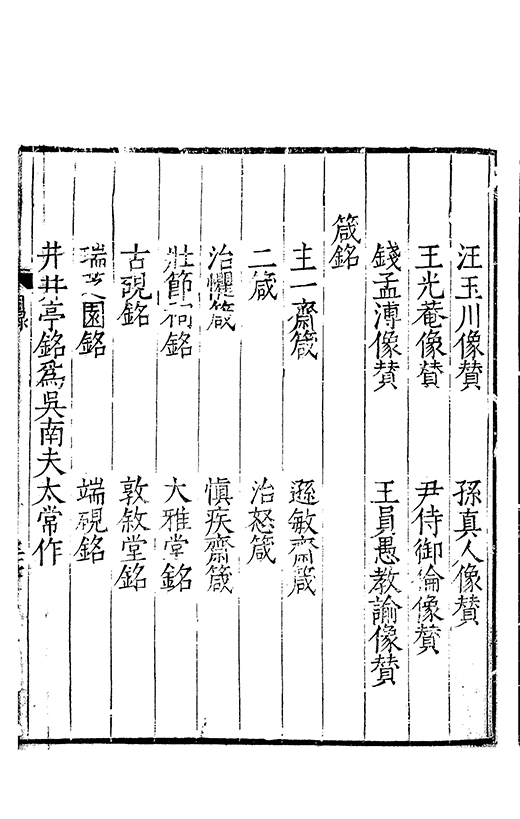 汪玉川像賛　孫真人像賛
王光菴像賛　尹侍御倫像賛
錢孟溥像賛　王員愚教諭像賛
箴銘
主一齋箴　遜敏齋箴
二箴　治怒箴
治懼箴　愼疾齋箴
壯節祠銘　大雅堂銘
古硯銘　敦敘堂銘
瑞芝園銘　端硯銘
井井亭銘爲吳南夫太常作